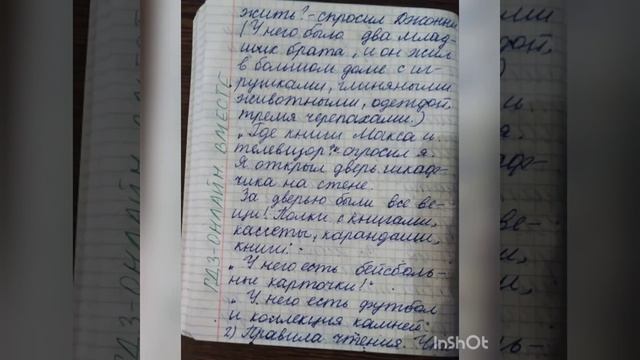 жить? - спросил Джонни
(У него было два млад-
ших брата, и он жил
в большом доме с иг-
рушками, глиняными
животными, одеждой,
тремя черепахами.)
„Где книги Макса и
телевизор?" - спросил я.
Я открыл дверь шкаф-
чика на стене.
За дверью были все ве-
щи! Полки с книгами,
кассеты, карандаши,
книги.
„У него есть бейсболь-
ные карточки!
„У него есть футбол
и коллекция камней.
2) Правила чтения.
ГДЗ-ОНЛАЙН ВМЕСТЕ
InShOt